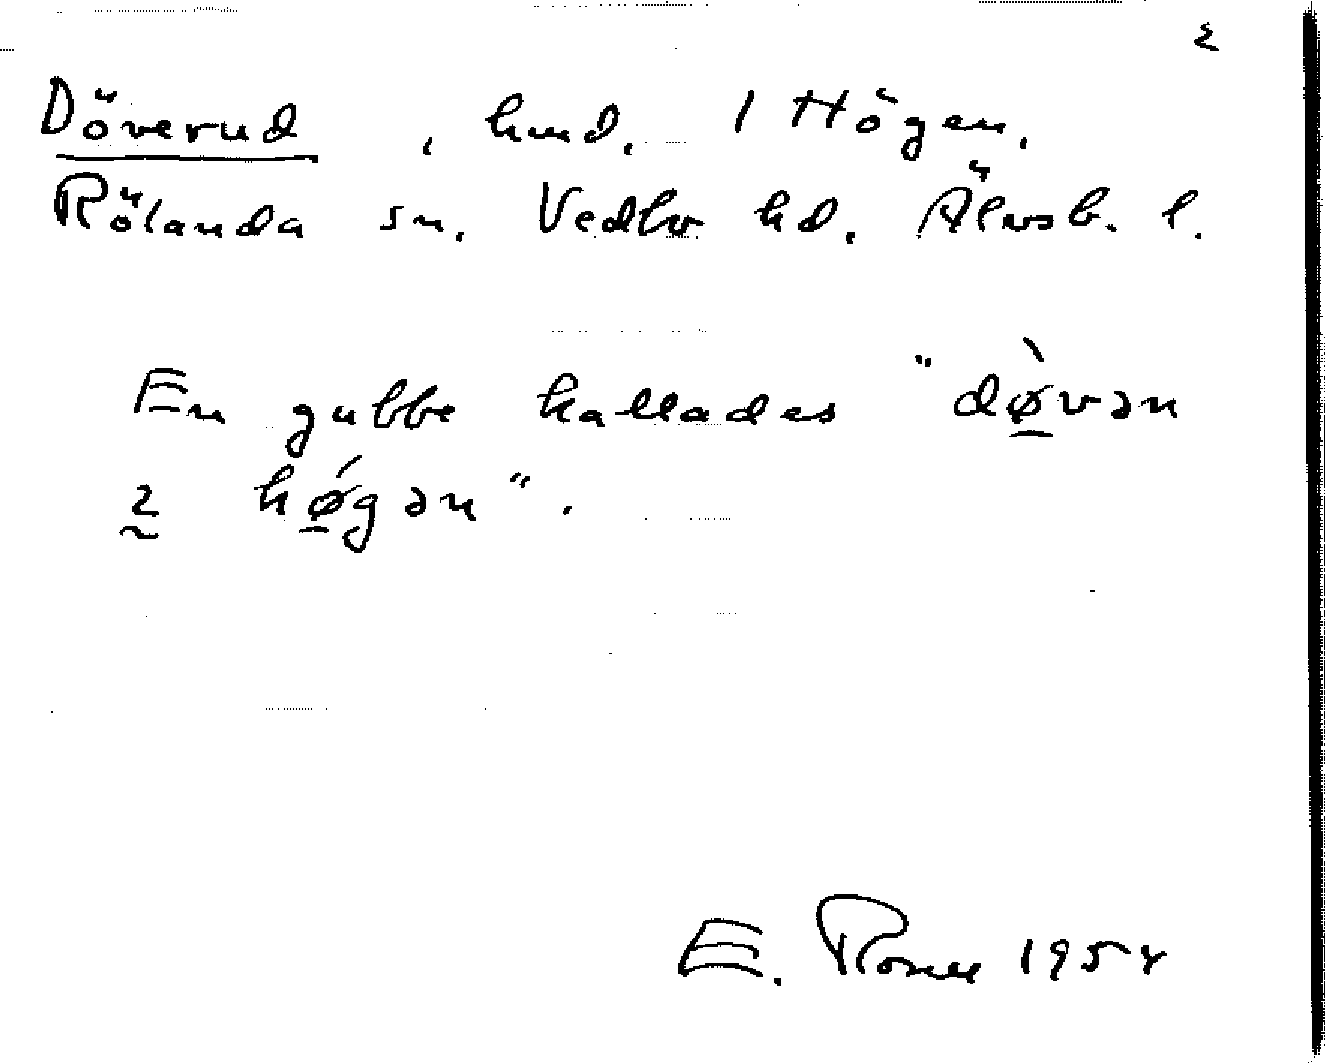 2
Döverud, hmd. 1 Högen,
Rölanda sn. Vedbo hd. Älvsb. l.
En gubbe kallades "dø̀vən
2 høǵən".
E. 1954